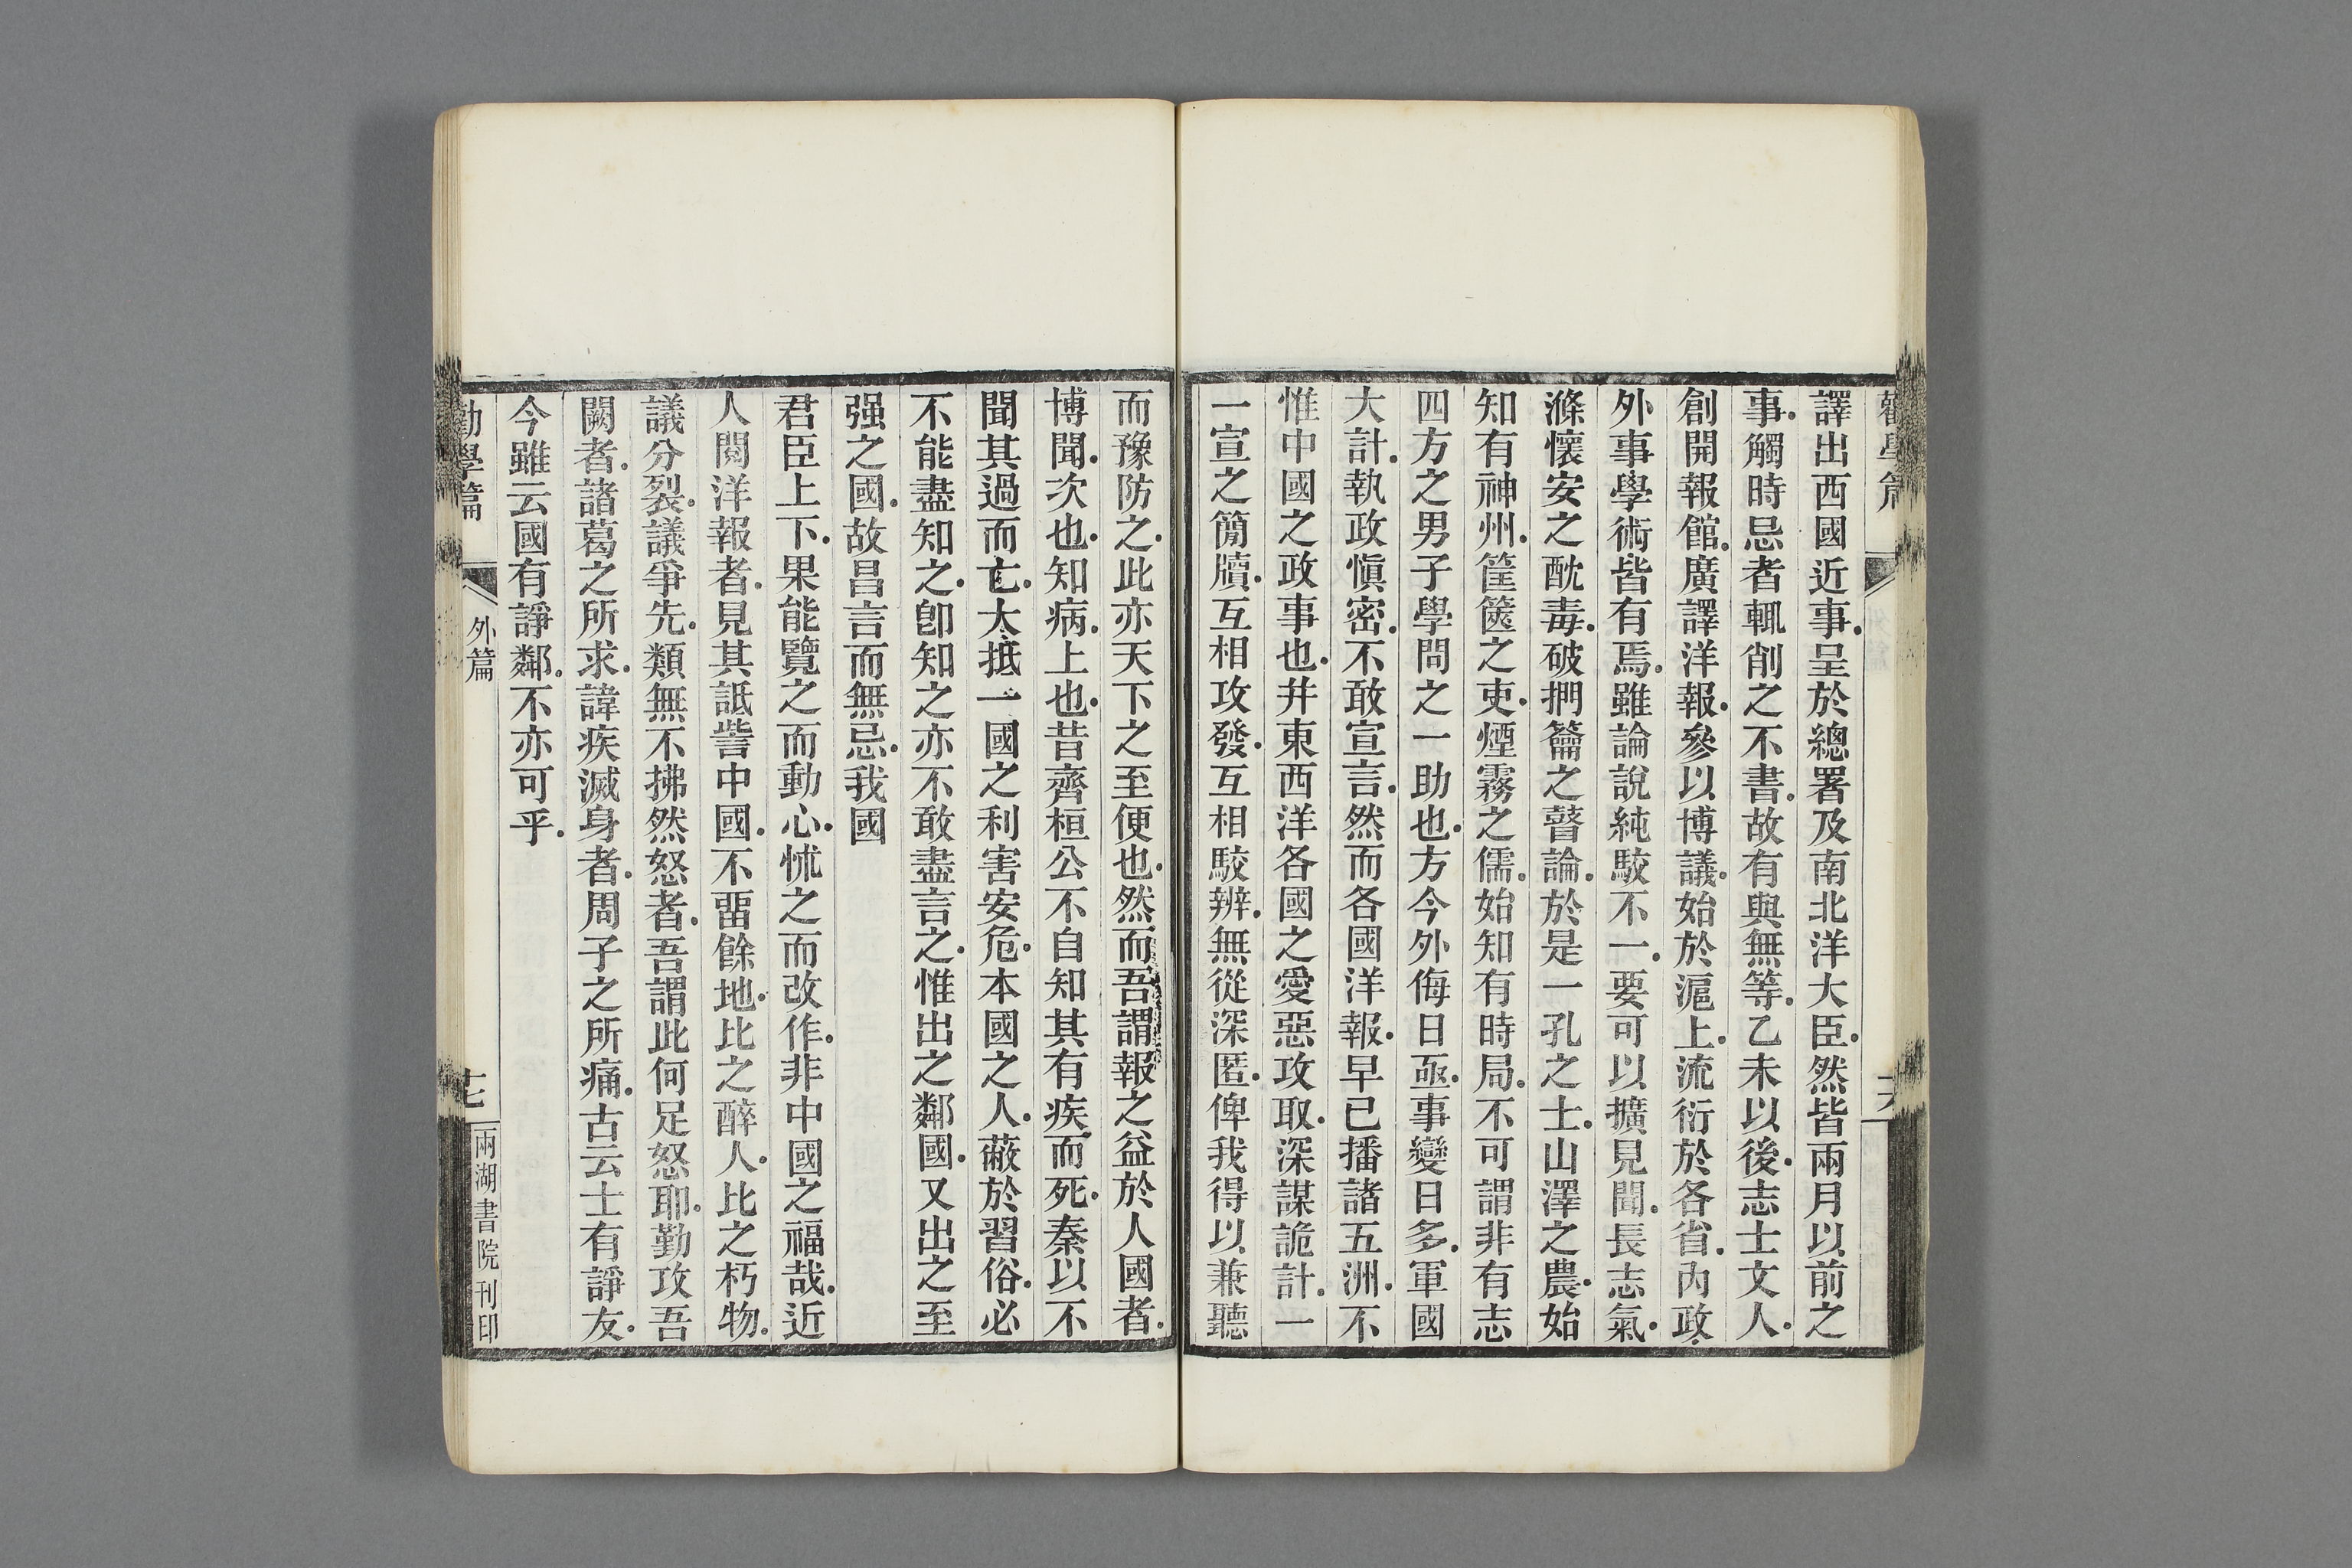 勸學篇
譯出西國近事.呈於總署及南北洋大臣.然皆兩月以前之
事.觸時忌者輒削之不書.故有與無等.乙未以後.志士文人.
創開報館.廣譯洋報.參以博議.始於滬上.流衍於各省.內政.
外事學術皆有焉.雖論說純駁不一.要可以擴見聞.長志氣.
滌懷安之酖毒.破捫籥之瞽論.於是一孔之士.山澤之農.始
知有神州.筐篋之吏.煙霧之儒.始知有時局.不可謂非有志
四方之男子學問之一助也.方今外侮日亟.事變日多.軍國
大計.執政愼密.不敢宣言.然而各國洋報.早已播諸五洲.不
惟中國之政事也.幷東西洋各國之愛惡攻取.深謀詭計.一
一宣之簡牘.互相攻發.互相駮辨.無從深匿.俾我得以兼聽
而豫防之.此亦天下之至便也.然而吾謂報之益於人國者.
博聞.次也.知病.上也.昔齊桓公不自知其有疾而死.秦以不
聞其過而亡.大抵一國之利害安危.本國之人.蔽於習俗.必
不能盡知之.卽知之亦不敢盡言之.惟出之鄰國.又出之至
强之國.故昌言而無忌.我國
君臣上下.果能覽之而動心.怵之而改作.非中國之福哉.近
人閱洋報者.見其詆訾中國.不畱餘地.比之醉人.比之朽物.
議分裂.議爭先.類無不拂然怒者.吾謂此何足怒耶.勤攻吾
闕者.諸葛之所求.諱疾滅身者.周子之所痛.古云士有諍友.
今雖云國有諍鄰.不亦可乎.
勸學篇
外篇
十七
兩湖書院刊印